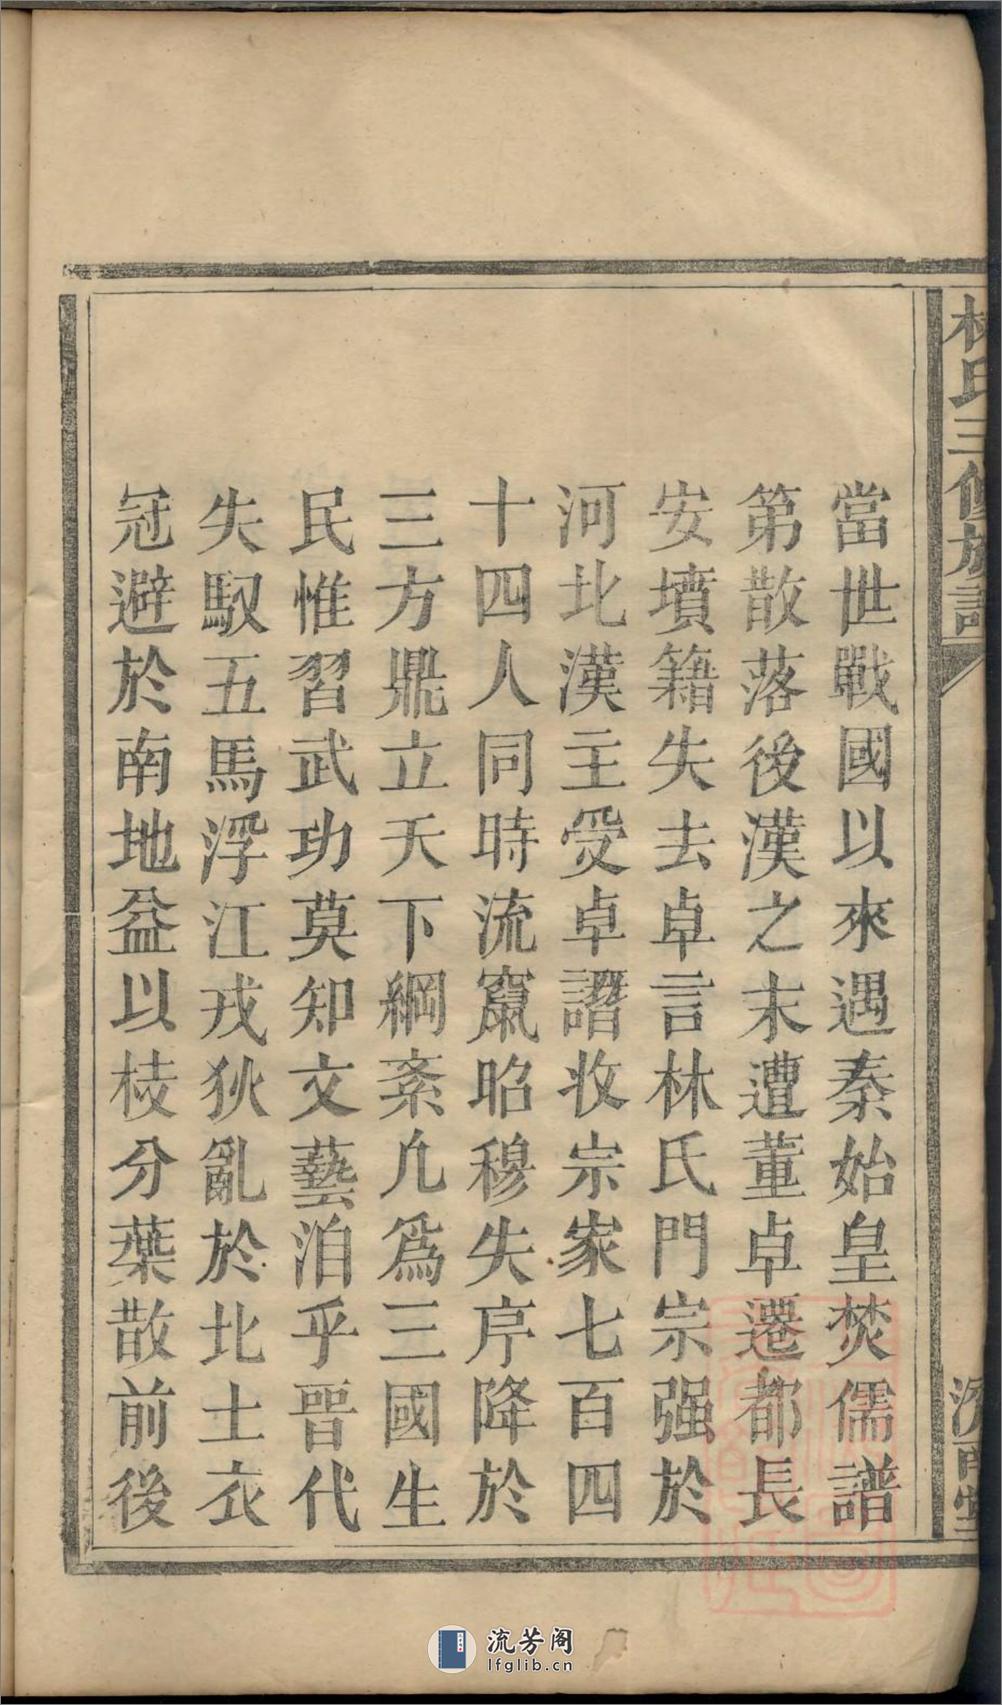 林氏三修族譜
濟南堂
當世戰國以來遇秦始皇焚儒譜
第散落後漢之末遭董卓遷都長
安墳籍失去卓言林氏門宗强於
河北漢主受卓譖收宗家七百四
十四人同時流竄昭穆失序降於
三方鼎立天下綱紊九爲三國生
民惟習武功莫知文藝洎乎晋代
失馭五馬浮江戎狄亂於北士衣
冠避於南地益以枝分葉散前後
流芳阁
lfglib.cn